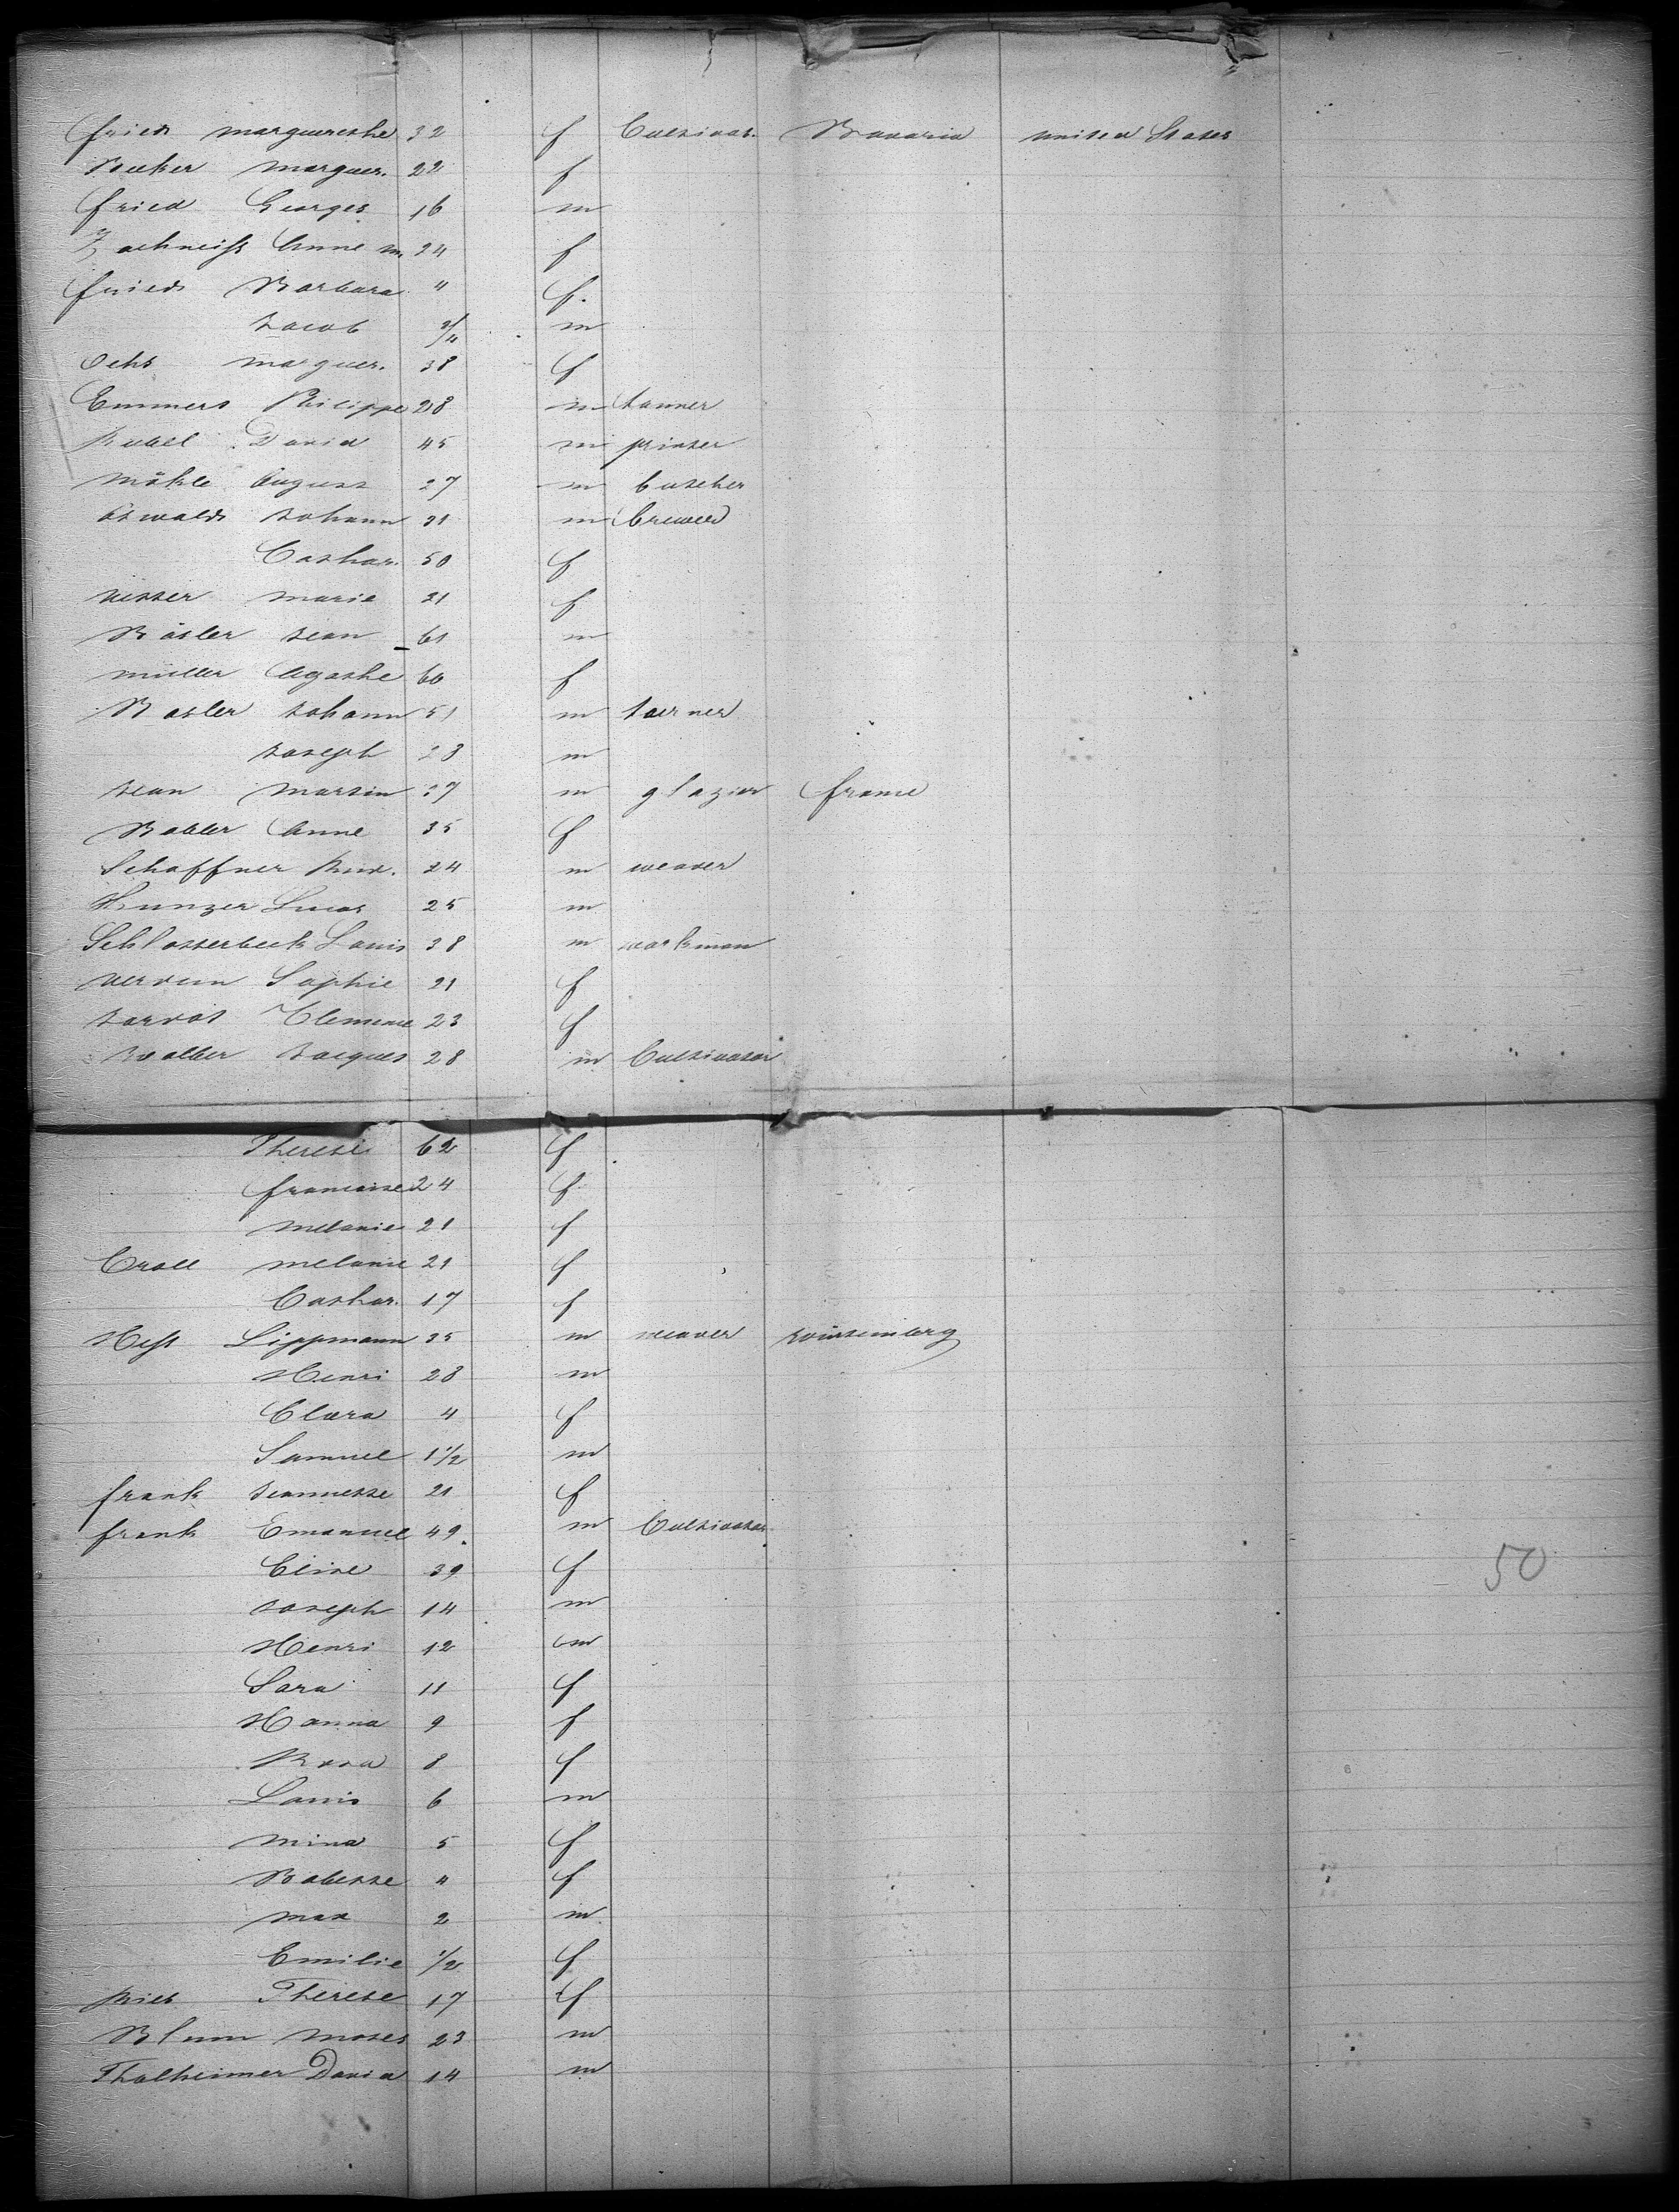 Fried marguerethe 32 f Cultivat. Bavaria united States
Becker marguer. 22 f
Fried Georges 16 m
Zachneiss Anne m. 24 f
Fried Barbara " f.
Jacob 3/4 m
Ochs marguer. 38 f
Emmers Philippe 28 m tanner
Rubel David 45 m printer
Mökle August 27 m butcher
Oswald Johann 31 m brewer
Cathar. 50 f
Netter marie 21 f
Bäsler Jean 61 m
müller Agathe 60 f
Basler Johann 51 m turner
Joseph 23 m
Jean Martin 37 m glazier France
Babler Anne 35 f
Schaffner Rud. 24 m weaver
Hunzer Lucas 25 m
Schlosserbeck Louis 38 m workman
Verdun Sophie 21 f
Jardot Clemence 23 f
Walter Jacques 28 m Cultivator
Therese 62 f
Francoise 24 f
Melanie 21 f
Croll melanie 21 f
Cathar. 17 f
Hess Lippmann 35 m weaver Würtemberg
Henri 28 m
Clara 4 f
Samuel 1 1/2 m
Frank Jeannette 21 f
Frank Emanuel 49. m Cultivator
Elise 39 f
Joseph 14 m
Henri 12 m
Sara 11 f
Hanna 9 f
Rosa 8 f
Louis 6 m
Mina 5 f
Babette 4 f
Max 2 m
Emilie 1/2 f
Ries Therese 17 f
Blum Moses 23 m
Thalheimer David 14 m
50